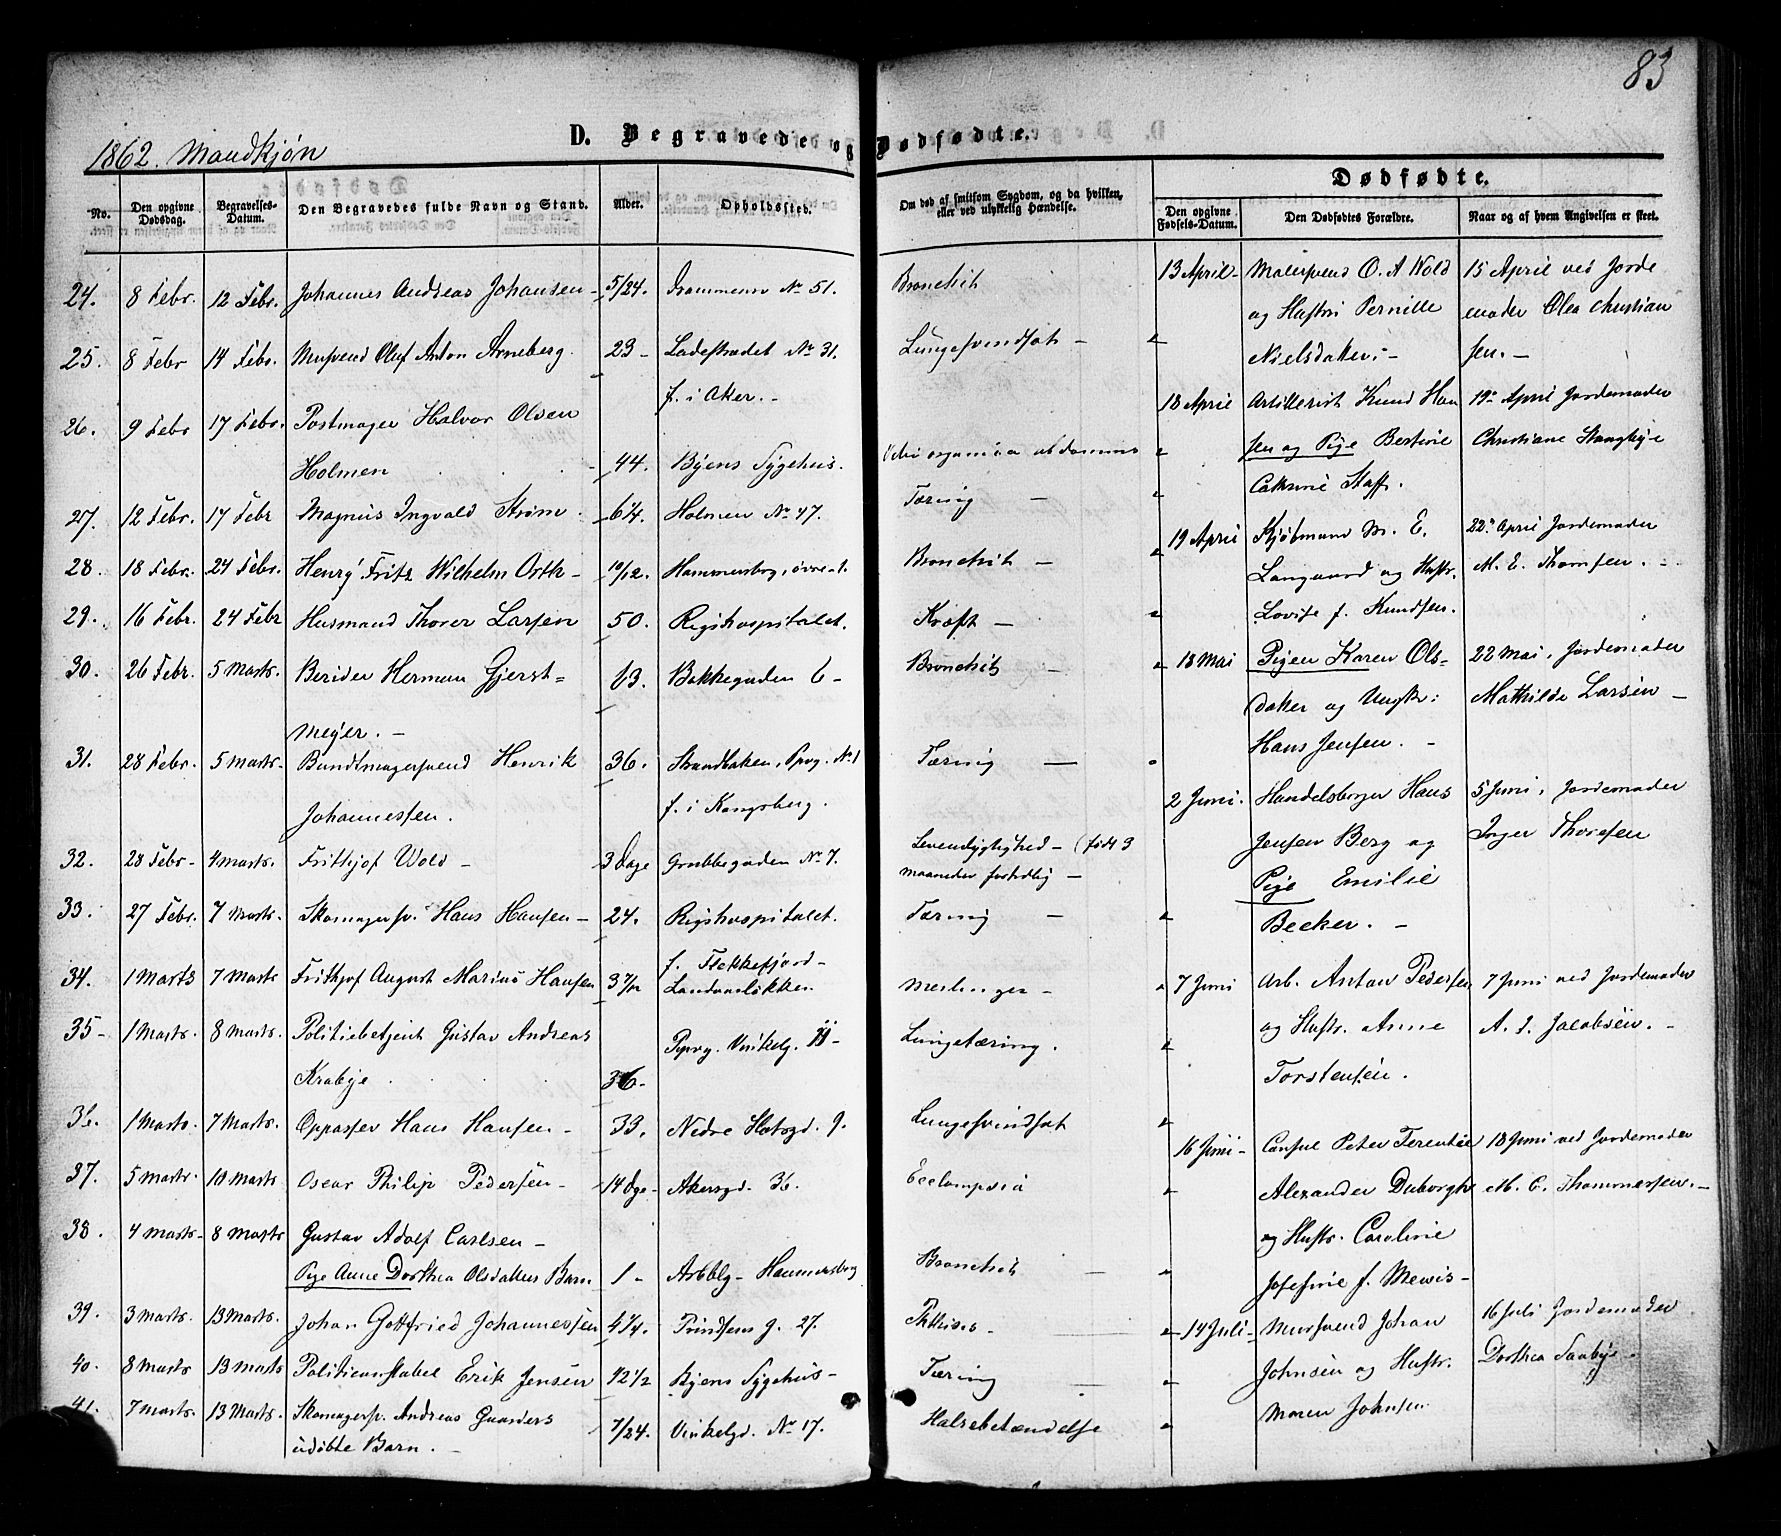 83
1862. Mandkjøn
D. Begravede og Dødfødte.
Dødfødte.
No.
Den opgivne Dødsdag.
Begravelses-Datum.
Den Begravedes fulde Navn og Stand.
Alder.
Opholdssted.
Om død af smitsom Sygdom, og da hvilken,
eller ved ulykkelig Hændelse.
Den opgivne Fødsels-Datum.
Den Dødfødtes Forældre.
Naar og af hvem Angivelsen er skeet.
24. 8 Febr. 12 Febr. Johannes Andreas Johansen - 5/24. Drammensv No 51. Bronchit
25. 8 Febr 14 Febr. Mursvend Oluf Anton Arneberg. 23 - Ladestrædet No 31. Lungesvindsot -
f. i Aker. -
26. 9 Febr 17 Febr. Postmager Halvor Olsen
Holmen 44. Byens Sygehus.
27. 12 Febr. 17 Febr Magnus Ingvald Strøm. 6 1/4. Holmen No 47. Tæring -
28. 18 Febr. 24 Febr. Henry Fritz Wilhelm Orth - 10/12. Hammersborg, øvre Bronchit -
29. 16 Febr. 24 Febr Husmand Thorer Larsen 50. Rigshospitalet. Kræft -
30. 26 Febr. 5 Marts. Berider Herman Gjerst= 63. Bakkegaden 6 - Bronchit -
meyer. -
31. 28 Febr. 5 Marts. Bundtmagersvend Henrik 36. Strandbakken, Ppvg. No 1 Tæring -
Johannessen. f. i Kongsberg.
32. 28 Febr - 4 Marts. Frithjof Wold - 3 Dage Grubbegaden No 7. Levendygtighed - (født 3
maaneder fortidlig -
33. 27 Febr. 7 Marts. Skomagersv. Hans Hansen - 24. Rigshospitalet. Tæring -
f. Flekkefjord -
34. 1 Marts 7 Marts Frithjof August Marius Hansen 3 7/12 Landvæsløkken Meslinger -
35 - 1 Marts. 8 Marts. Politiebetjent Gustav Andreas Ppvg. Vinkelg. 11 - Lungetæring.
Krabye 36 -
36. 1 Marts. 7 Marts. Oppasser Hans Hansen - 33. Nedre Slotsgd. 9. Lungesvindsot
37. 5 Marts. 10 Marts. Oscar Philip Pedersen - 14 Dge - Akersgd. 36. Eclampsia
38. 4 Marts - 8 Marts Gustav Adolf Carlsen -
Pige Anne Dorthea Olsdatters Barn 1 - Arbblg - Hammersborg Bronchit -
39. 3 Marts. 13 Marts. Johan Gottfried Johannessen 4 1/4. Prindsens g. 27. Phthisis -
40. 8 Marts 13 Marts Politiconstabel Erik Jensen 42 1/2 Byens Sygehus - Tæring -
41. 7 Marts. 13 Marts. Skomagersv. Andreas Gaarders 7/24. Vinkelgd. No 17. Halsebetændelse
udøbte Barn. -
13 April - Malersvend O. A Wold 15 April ved Jorde
og Hustru Pernille moder Olea Christian
Nielsdatter: - sen. -
18 April Artillerist Knud Han 19de April Jordemoder
sen og Pige Bertine Christiane Stangbye
Cathrine Staff.
19 April Kjøbmand M. E. 22de April Jordemoder
Langaard og Hustr. M. E. Thomsen. -
Lovise f. Knudsen.
18 Mai Pigen Karen Ols- 22 Mai, Jordemoder
datter og Ungk: Mathilde Larsen -
Hans Jensen. -
2 Juni. Handelsborger Hans 5 Juni, Jordemoder
Jensen Berg og Inger Thoresen
Pige Emilie
Becker. -
7 Juni Arb. Anton Pedersen 7 Juni ved Jordemoder
og Hustr. Anne A. I. Jacobsen. -
Torstensen.
16 Juni - Consul Peter Terentie 18 Juni ved Jordemoder
Alexander Duborgh M. C. Thommesen. -
og Hustr. Caroline
Josefine f. Mewis -
14 Juli - Mursvend Johan 16 Juli Jordemoder
Johnsen og Hustr. Dorthea Saxbye.
Maren Johnsen